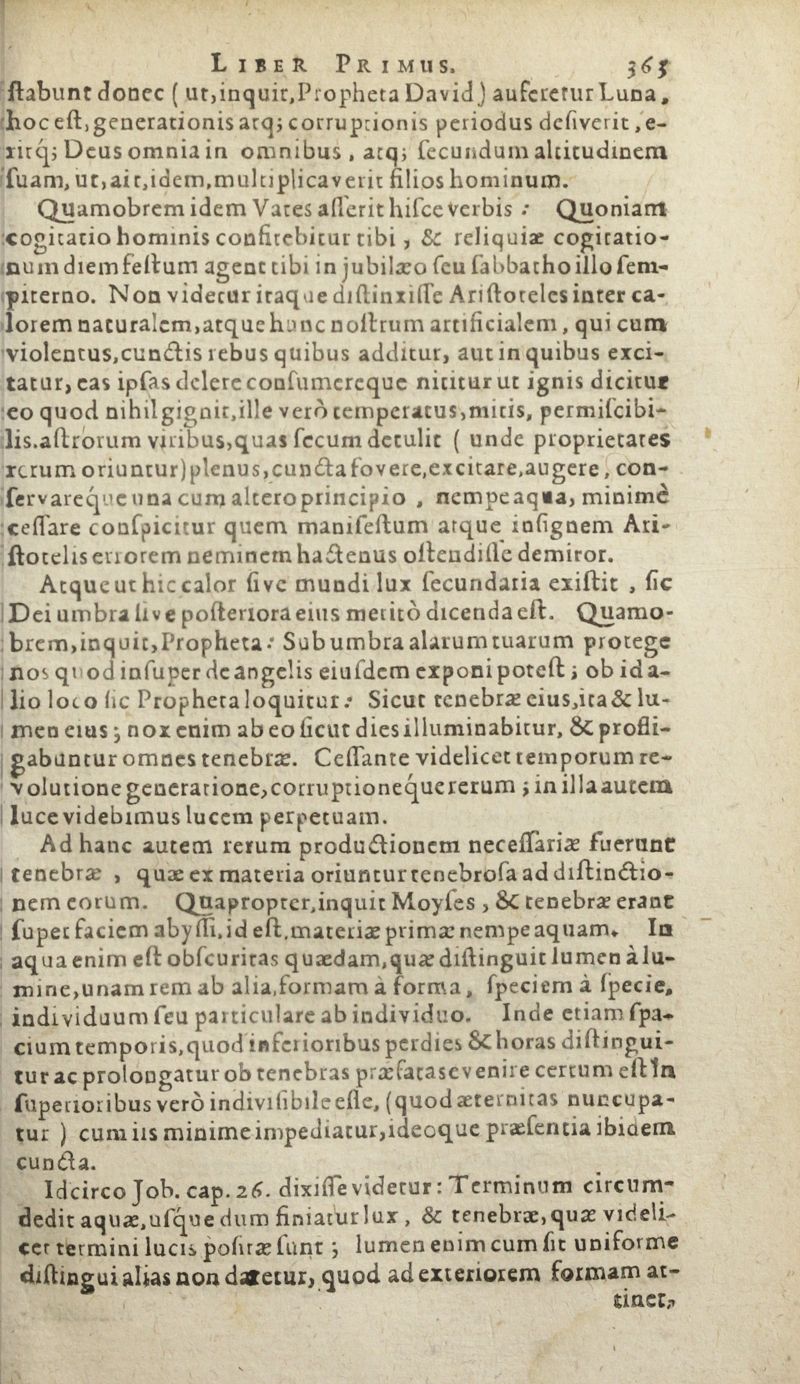 LIBER PRIMUS. 365
ſtabunt donec ( ut,inquit,Propheta David) auferetur Luna,
hoc eſt, generationis atq; corruptionis periodus deſiverit, e-
ritq; Deus omnia in omnibus, atq; ſecundum altitudinem
ſuam, ut, ait, idem, multiplicaverit filios hominum.
Quamobrem idem Vates aſſerit hiſce verbis : Quoniam
cogitatio hominis confitebitur tibi, & reliquiæ cogitatio-
num diem feſtum agent tibi in jubilæo ſeu ſabbatho illo ſem-
piterno. Non videtur itaque diſtinxiſſe Ariſtoteles inter ca-
lorem naturalem, atque hunc noſtrum artificialem, qui cum
violentus, cunctis rebus quibus additur, aut in quibus exci-
tatur, eas ipſas delere conſumereque nititur ut ignis dicitur
eo quod nihil gignit, ille verò temperatus, mitis, permiſcibi-
lis. aſtrorum viribus, quas ſecum detulit ( unde proprietates
rerum oriuntur) plenus, cuncta fovere, excitare, augere, con-
ſervareque una cum altero principio, nempe aqua, minimè
ceſſare conſpicitur quem manifeſtum atque inſignem Ari-
ſtotelis errorem neminem hactenus oſtendiſſe demiror.
Atque ut hic calor ſive mundi lux ſecundaria exiſtit, ſic
Dei umbra ſive poſteriora eius meritò dicenda eſt. Quamo-
brem, inquit, Propheta: Sub umbra alarum tuarum protege
nos quod inſuper de angelis eiuſdem exponi poteſt; ob id a-
lio loco ſic Propheta loquitur: Sicut tenebræ eius, ita & lu-
men eius; nox enim ab eo ſicut dies illuminabitur, & profli-
gabuntur omnes tenebræ. Ceſſante videlicet temporum re-
volutione generatione, corruptionequ rerum; in illa autem
luce videbimus lucem perpetuam.
Ad hanc autem rerum productionem neceſſariæ fuerunt
tenebræ, quæ ex materia oriuntur tenebroſa ad diſtinctio-
nem eorum. Quapropter, inquit Moyſes, & tenebræ erant
ſuper faciem abyſſi, id eſt, materiæ primæ nempe aquam. In
aqua enim eſt obſcuritas quædam, quæ diſtinguit lumen à lu-
mine, unam rem ab alia, formam à forma, ſpeciem à ſpecie,
individuum ſeu particulare ab individuo. Inde etiam ſpa-
cium temporis, quod inferioribus per dies & horas diſtingui-
tur ac prolongatur ob tenebras præfatas evenire certum eſt in
ſuperioribus verò indiviſibile eſſe, (quod æternitas nuncupa-
tur ) cum iis minime impediatur, ideoque præſentia ibidem
cuncta.
Idcirco Job. cap. 26. dixiſſe videtur: Terminum circum-
dedit aquæ, uſque dum finiatur lux, & tenebræ, quæ videli-
cet termini lucis poſitæ ſunt; lumen enim cum ſit uniforme
diſtingui alias non daretur, quod ad exteriorem formam at-
tinet,